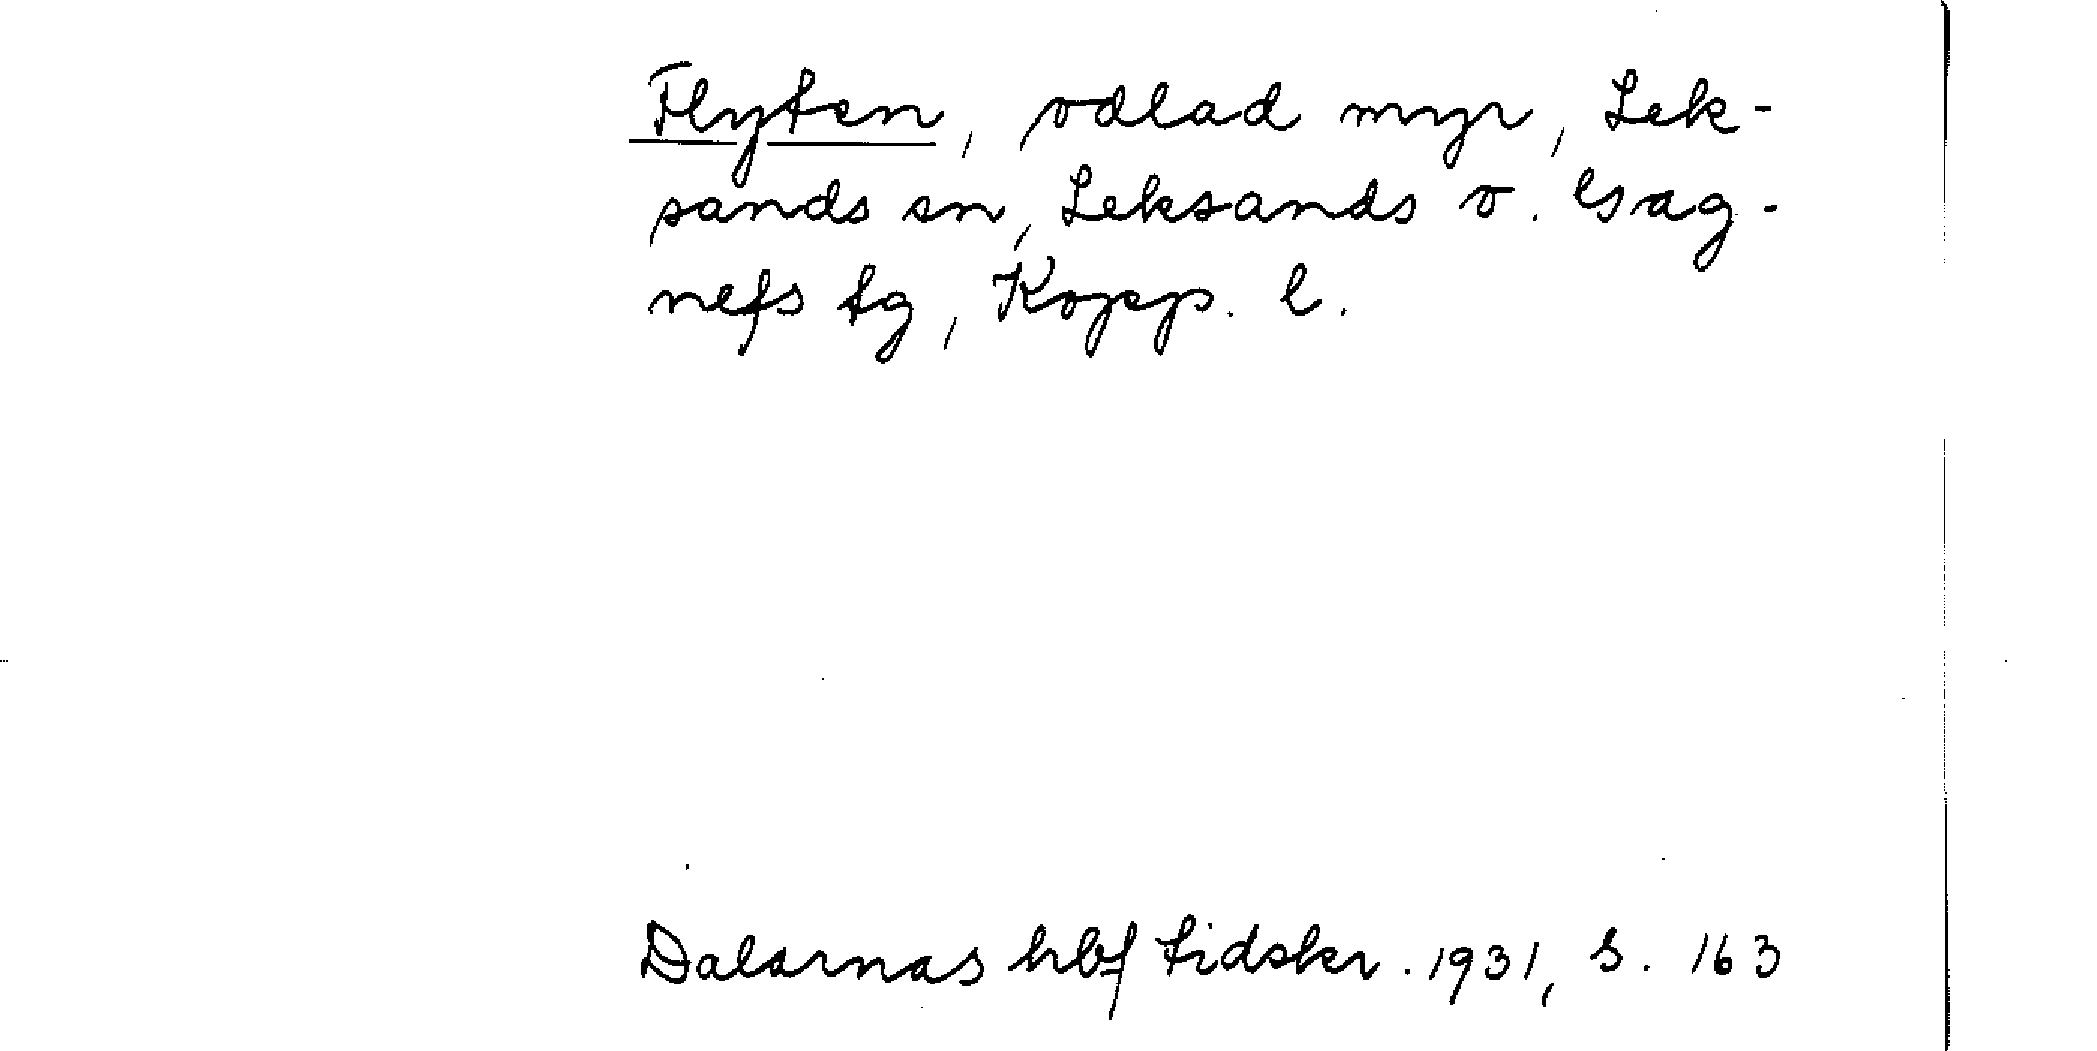 Flyten, odlad myr, Lek-
sands sn, Leksands o. Gag-
nefs tg, Kopp. l.
Dalarnas hbf tidskr. 1931, s. 163